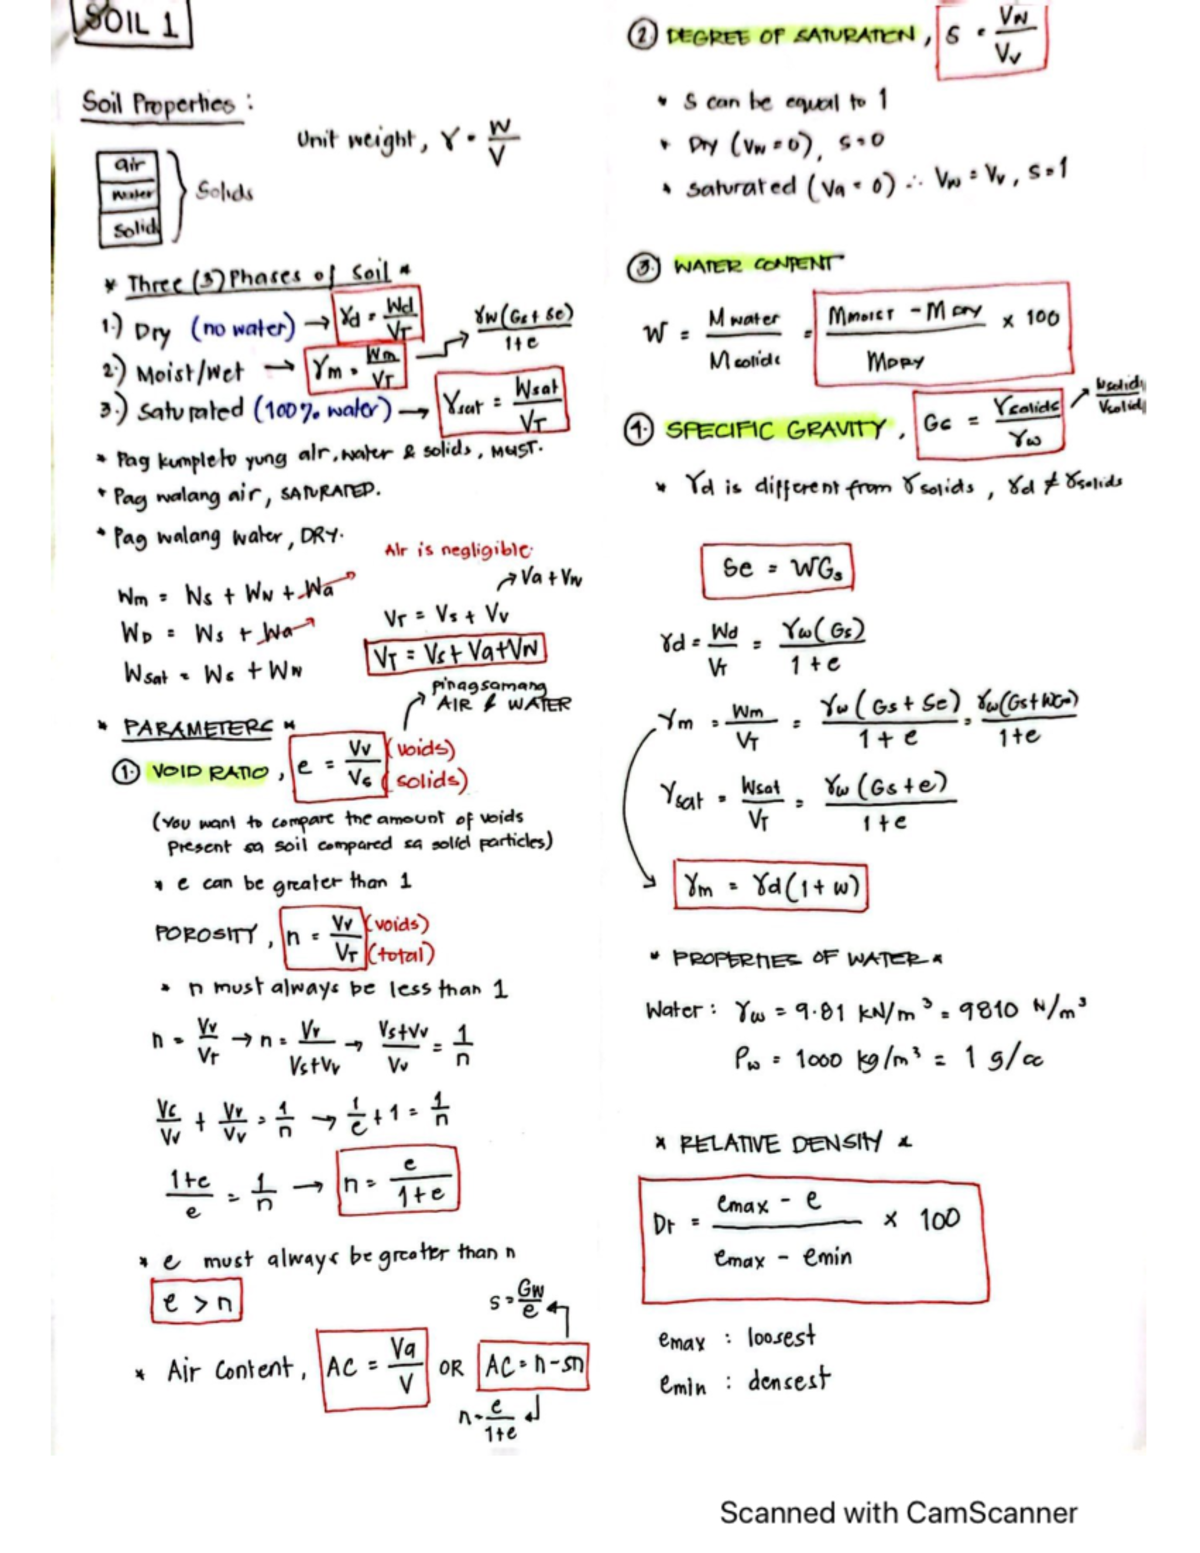 SOIL 1
Soil Properties :
Unit weight, γ = W/V
air
water
solid
} Solids
* Three (3) Phases of Soil *
1.) Dry (no water) → γd = Wd/VT
γw(Gs + Se)/1+e
2.) Moist/Wet → γm = Wm/VT
3.) Saturated (100% water) → γsat = Wsat/VT
* Pag kumpleto yung air, water & solids, MOIST.
* Pag walang air, SATURATED.
* Pag walang water, DRY.
Air is negligible
Wm = Ws + Ww + Wa
WD = Ws + Wa
Wsat = Ws + Ww
→ Va + Vw
VT = Vs + Vv
VT = Vs + Va + Vw
pinagsamang
AIR & WATER
* PARAMETERS *
① VOID RATIO, e = Vv/Vs (voids) (solids)
(You want to compare the amount of voids
present sa soil compared sa solid particles)
* e can be greater than 1
POROSITY, n = Vv/VT (voids) (total)
* n must always be less than 1
n = Vv/VT → n = Vv/Vs+Vv → Vs+Vv/Vv = 1/n
Vs/Vv + Vv/Vv = 1/n → 1/e + 1 = 1/n
1+e/e = 1/n → n = e/1+e
* e must always be greater than n
e > n
S = Gw/e
* Air Content, AC = Va/V OR AC = n - Sn
n = e/1+e
② DEGREE OF SATURATION, S = Vw/Vv
* S can be equal to 1
* Dry (Vw = 0), S = 0
* saturated (Va = 0) ∴ Vw = Vv, S = 1
③ WATER CONTENT
W = Mwater/Msolids = Mmoist - MDRY/MDRY x 100
④ SPECIFIC GRAVITY, Gs = γsolids/γw
Wsolids/Vsolids
* γd is different from γsolids, γd ≠ γsolids
Se = WGs
γd = Wd/VT = γw(Gs)/1+e
γm = Wm/VT = γw(Gs + Se)/1+e = γw(Gs+WGs)/1+e
γsat = Wsat/VT = γw(Gs+e)/1+e
γm = γd(1+w)
* PROPERTIES OF WATER *
Water : γw = 9.81 kN/m³ = 9810 N/m³
ρw = 1000 kg/m³ = 1 g/cc
* RELATIVE DENSITY *
Dr = emax - e/emax - emin x 100
emax : loosest
emin : densest
Scanned with CamScanner